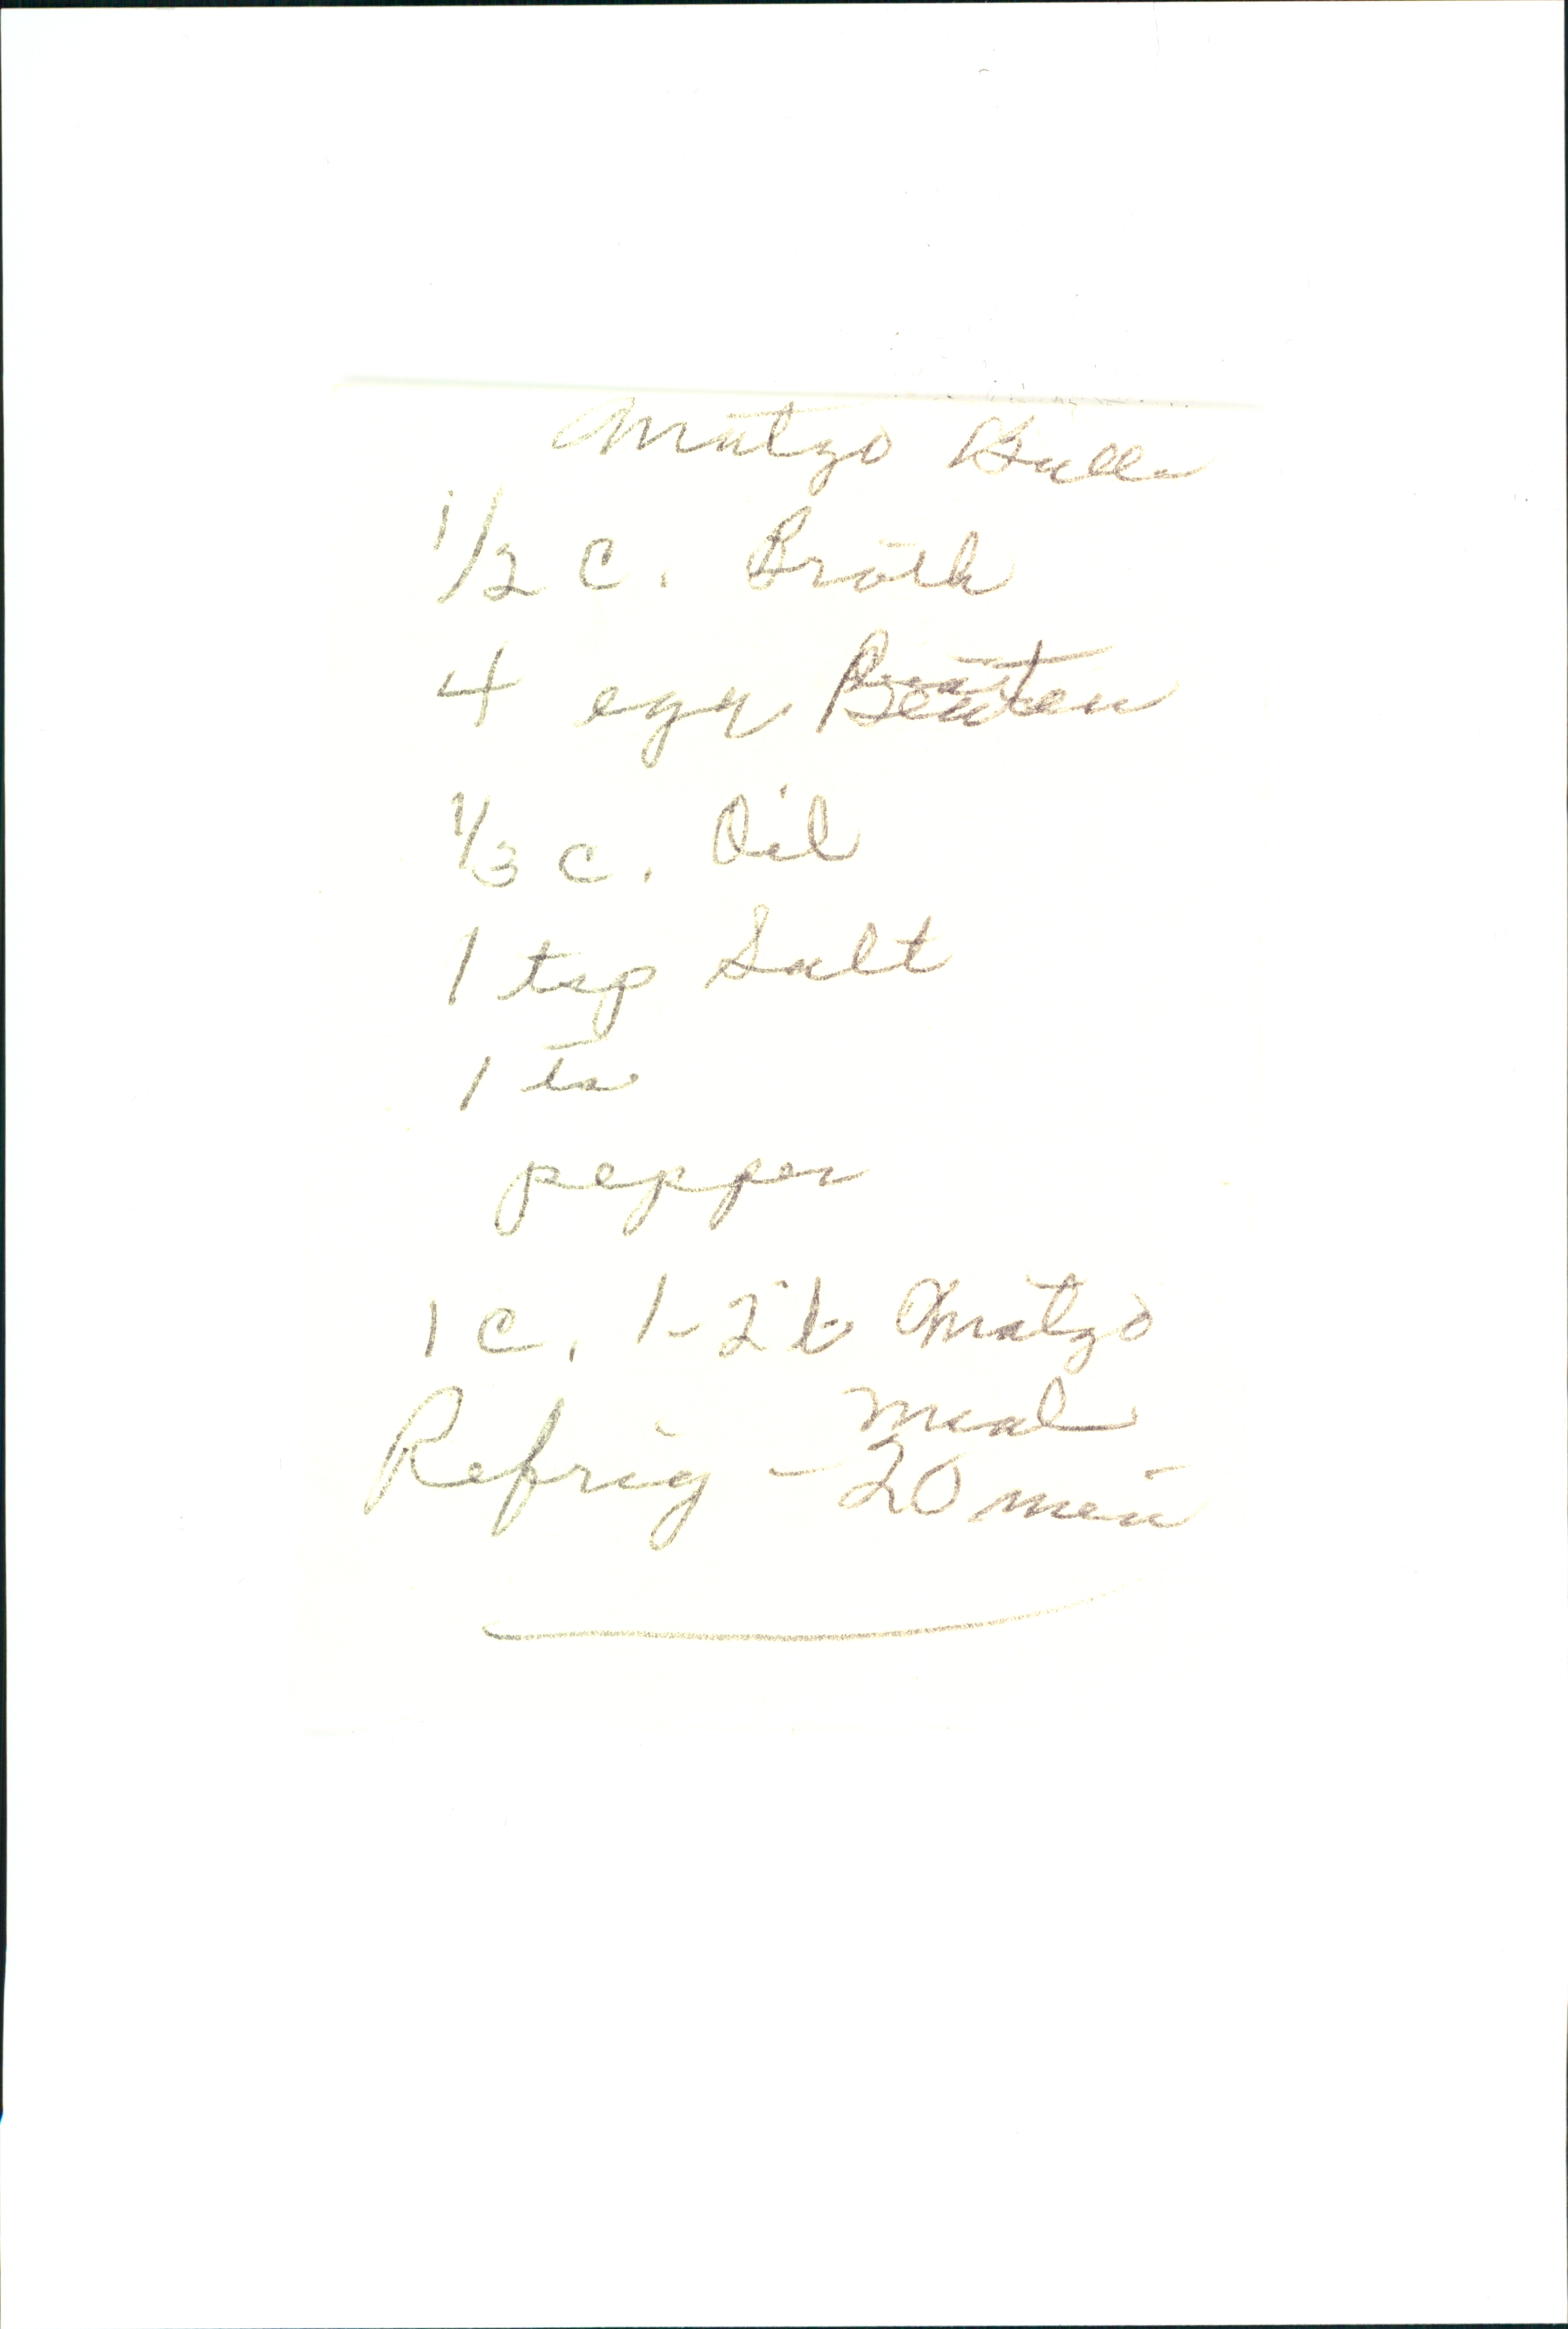 Matzo Balls
1/2 c. Broth
4 eggs Beaten
1/3 c. Oil
1 tsp Salt
1
pepper
1 c. 1-2 Matzo
meal
Refrig - 20 min